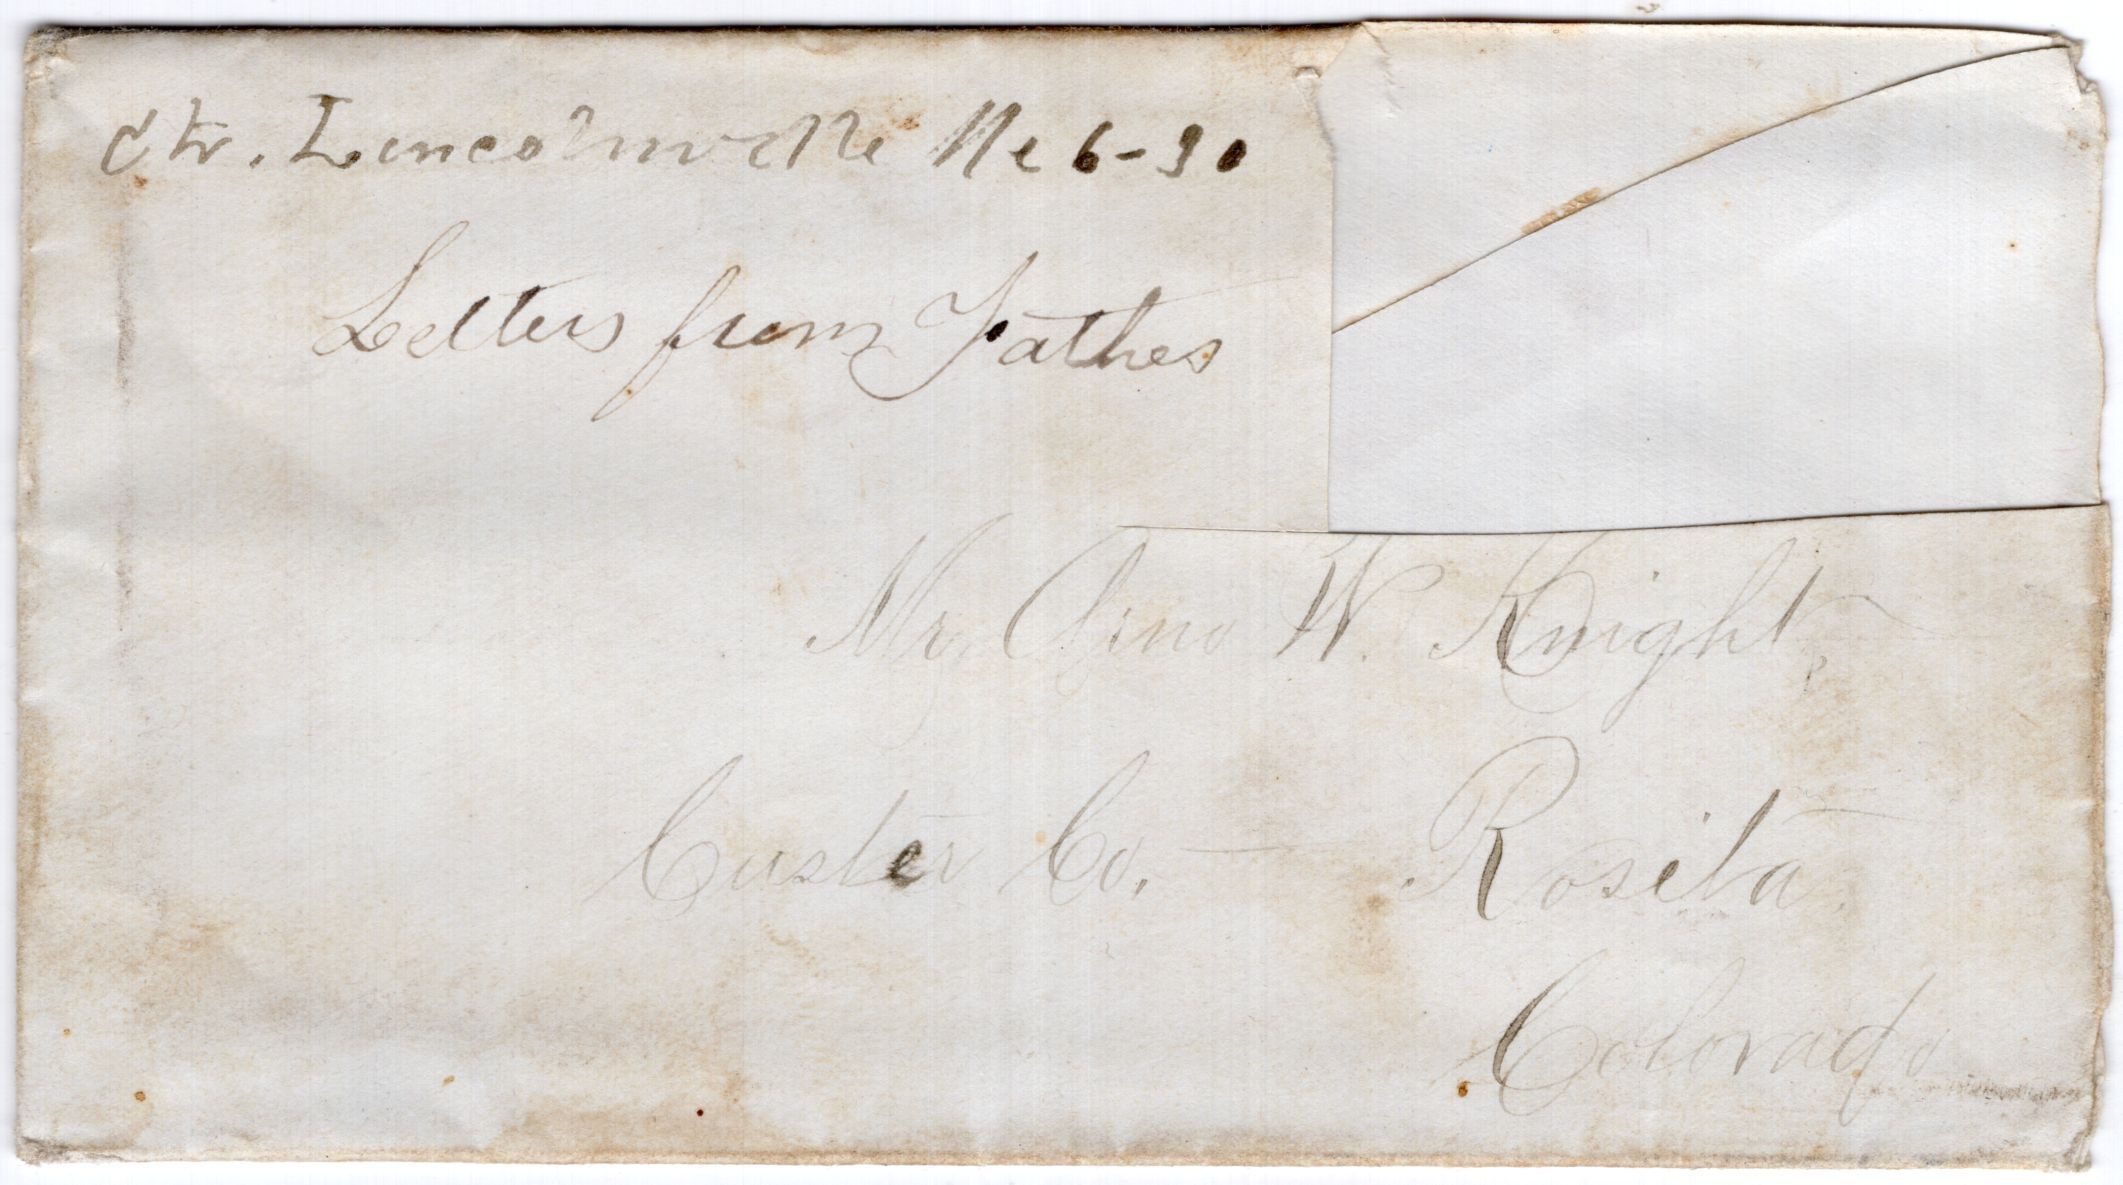 Ctr. Lincolnville Me 6-30
Letters from Father
Mr. Arno W. Knight
Custer Co. — Rosita.
Colorado